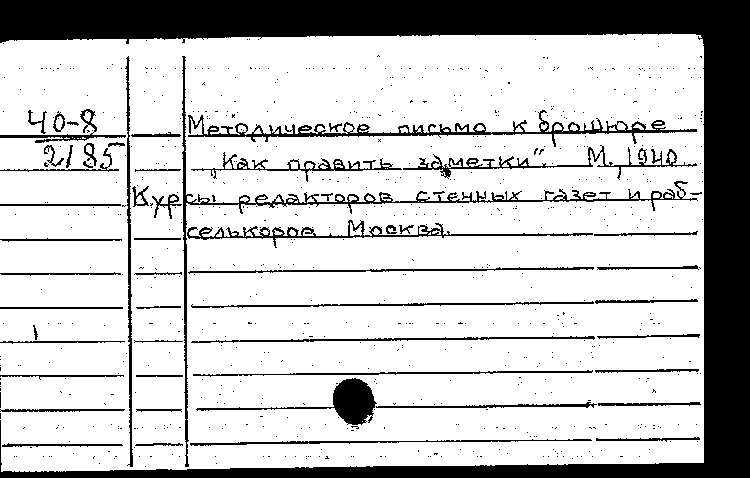 40-8
2185
Методическое письмо к брошюре
„Как править заметки". М., 1940
Курсы редакторов стенных газет и раб-
селькоров. Москва.